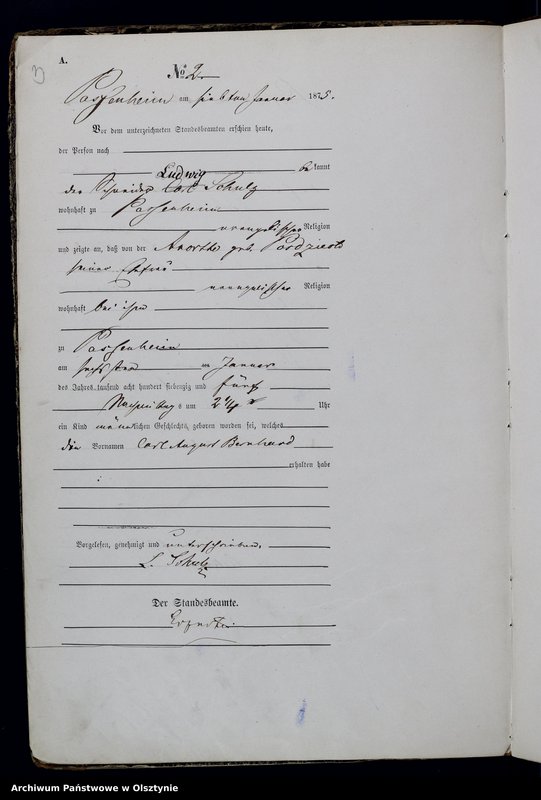 A.
No 2.
Passenheim am siebten Januar 1875.
Vor dem unterzeichneten Standesbeamten erschien heute,
der Person nach
Ludwig bekannt
der Schneider Carl Schulz
wohnhaft zu Passenheim
evangelischer Religion
und zeigte an, daß von der geb.
seiner Ehefrau
evangelischer Religion
wohnhaft bei ihm
zu Passenheim
am sechsten Januar
des Jahres tausend acht hundert siebenzig und fünf
Nachmittags um 2 1/4 Uhr
ein Kind männlichen Geschlechts, geboren worden sei, welches
die Vornamen Carl August Bernhard
erhalten habe
Vorgelesen, genehmigt und unterschrieben.
L. Schulz
Der Standesbeamte.
Archiwum Państwowe w Olsztynie